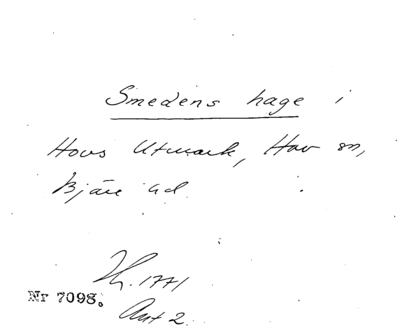 Smedens hage i
Hovs Utmark, Hov sn,
Bjäre hd.
h. 1771
Akt 2.
Nr 7098.